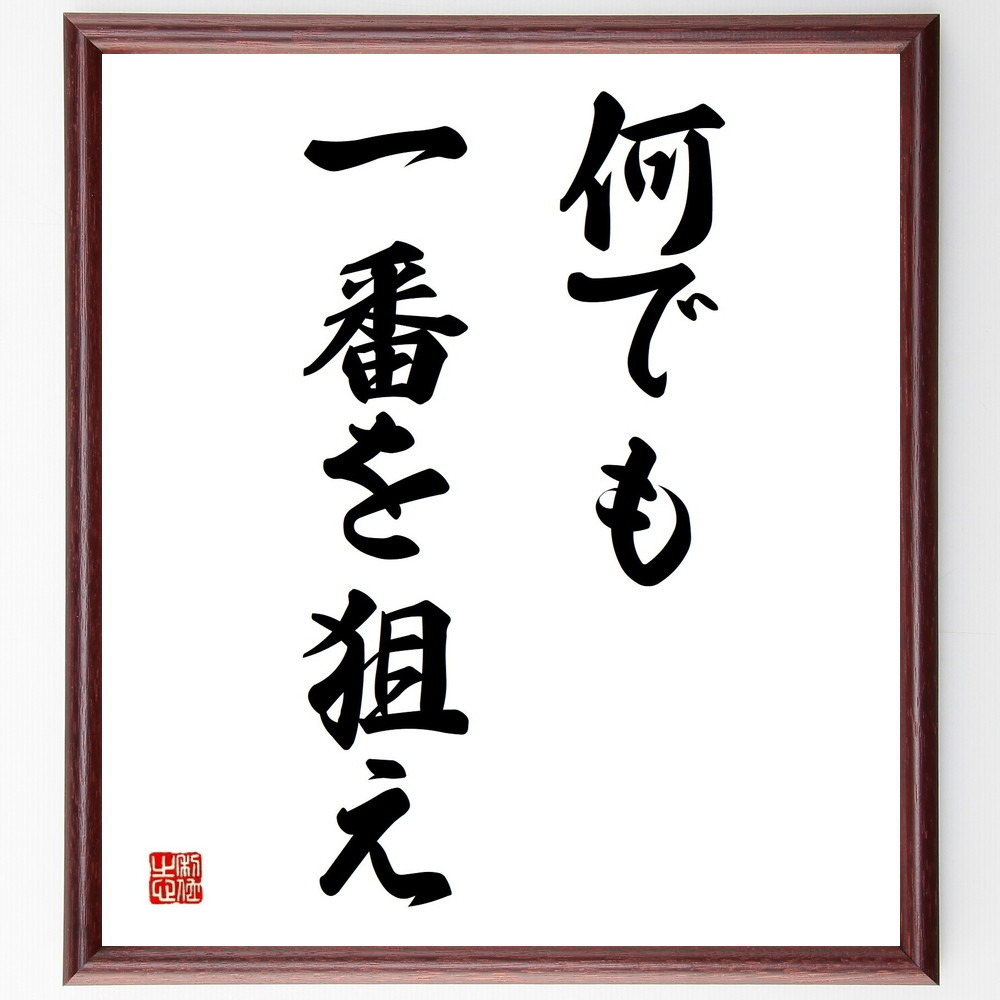 何でも
一番を狙え